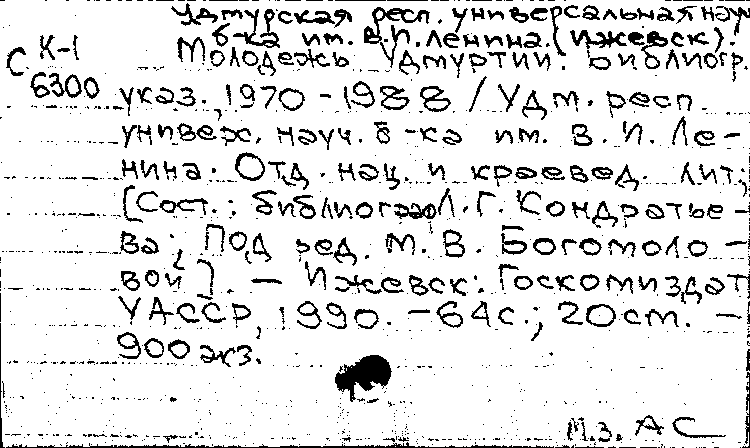 Удмуртская респ. универсальная науч.
б-ка им. В.И. Ленина. (Ижевск).
С К-1 Молодежь Удмуртии: Библиогр.
6300 указ., 1970-1988 / Удм. респ.
универ. науч. б-ка им. В. И. Ле-
нина. Отд. нац. и краевед. лит;
[Сост.: библиограф Л. Г. Кондратье-
ва; Под ред. М. В. Богомоло-
вой]. - Ижевск: Госкомиздат
УАССР, 1990. - 64 с.; 20 см. -
900 экз.
М.З. АС